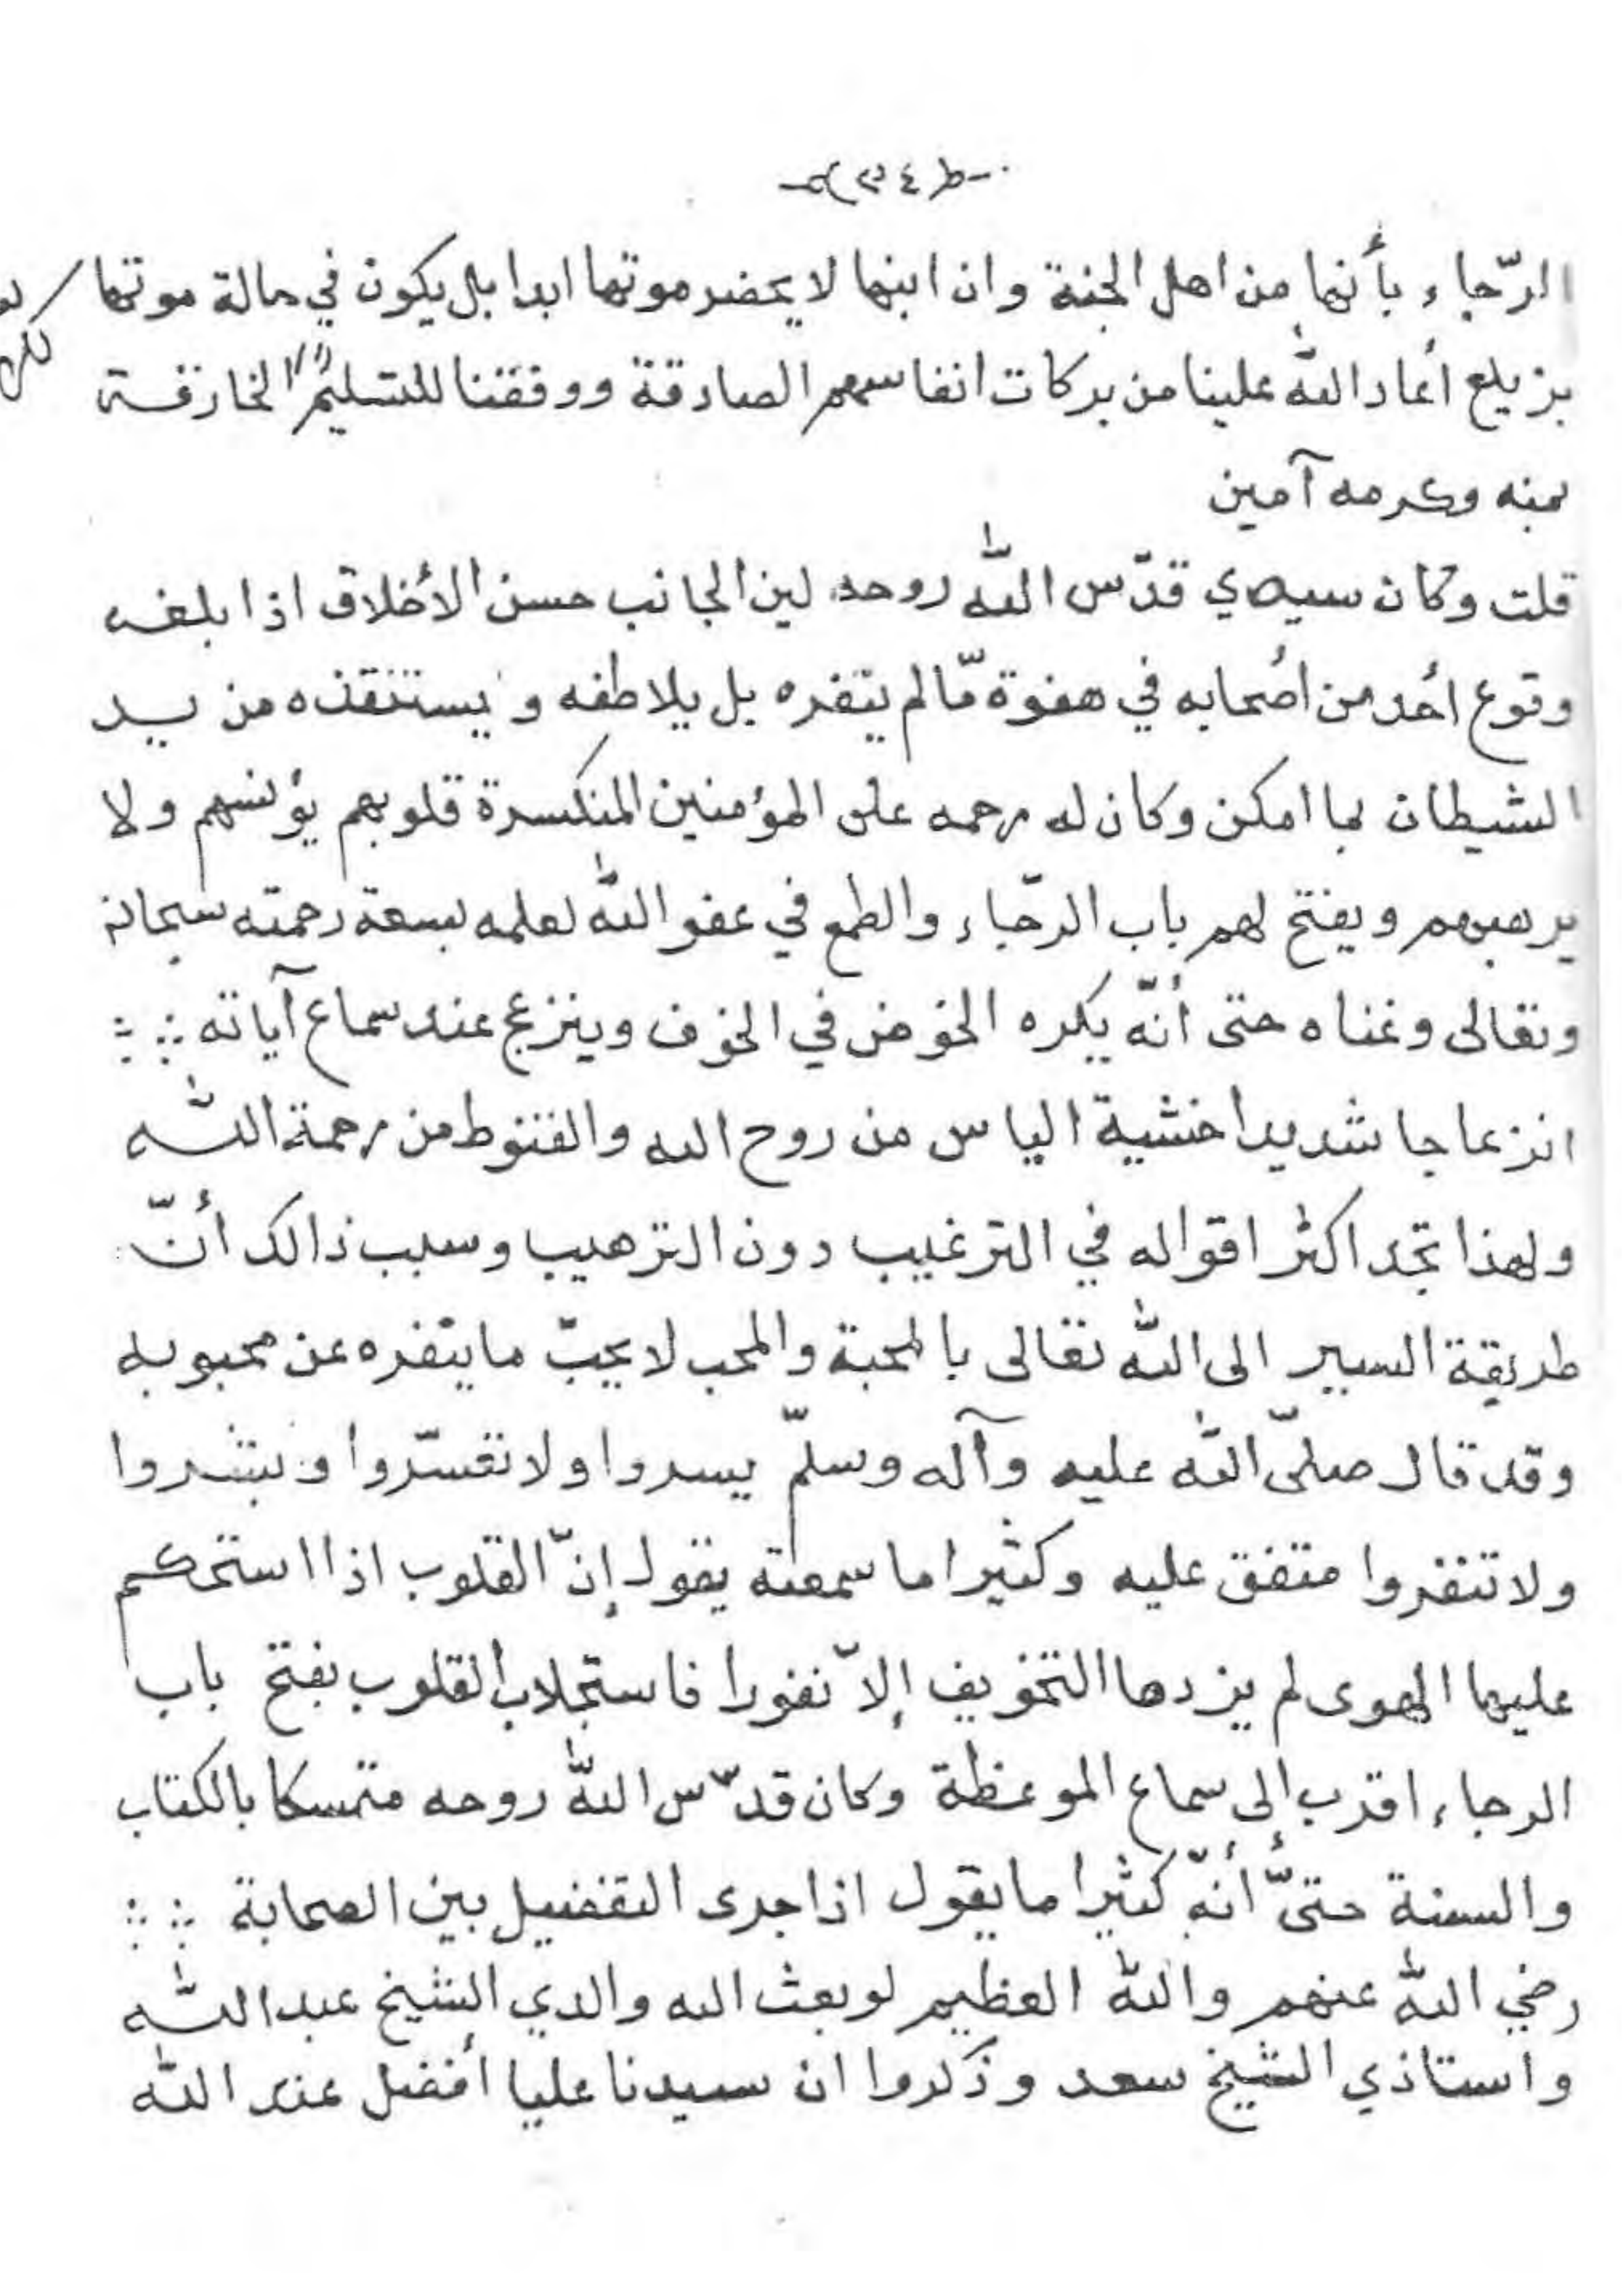 الرّجاء بأنها من اهل الجنة وان ابنها لا يحضر موتها ابدا بل يكون في حالة موتها
بزيلع أعاد الله علينا من بركات انفاسهم الصادقة ووفقنا للتسليم الخارقة
بمنه وكرمه آمين
قلت وكان سيدي قدّس الله روحه لين الجانب حسن الأخلاق اذا بلغه
وقوع أحد من أصحابه في هفوة مّا لم ينفره بل يلاطفه ويستنقذه من يد
الشيطان بما امكن وكان له رحمه على المؤمنين المنكسرة قلوبهم يؤنسهم ولا
يرهبهم ويفتح لهم باب الرّجاء والطمع في عفو الله لعلمه بسعة رحمته سبحانه
وتعالى وغناه حتى أنّه يكره الخوض في الخوف وينزعج عند سماع آياته
انزعاجا شديدا خشية الياس من روح الله والقنوط من رحمة الله
ولهذا تجد اكثر اقواله في الترغيب دون الترهيب وسبب ذالك أنّ
طريقة السير الى الله تعالى بالمحبة والمحب لا يحبّ ما ينفره عن محبوبه
وقد قال صلّى الله عليه وآله وسلّم يسروا ولا تعسّروا وبشروا
ولا تنفروا متفق عليه وكثيرا ما سمعته يقول إنّ القلوب اذا استحكم
عليها الهوى لم يزدها التخويف إلاّ نفورا فاستجلاب القلوب بفتح باب
الرجاء اقرب إلى سماع الموعظة وكان قدّس الله روحه متمسكا بالكتاب
والسنة حتىّ أنهّ كثيرا ما يقول اذا جرى التفضيل بين الصحابة
رضي الله عنهم والله العظيم لو بعث الله والدي الشيخ عبد الله
واستاذي الشيخ سعد وذكروا ان سيدنا عليا أفضل عند الله